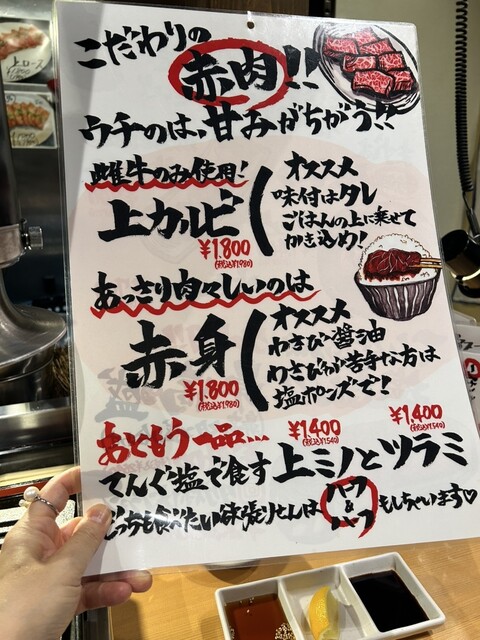 こだわりの
赤肉!!
ウチのは、甘みがちがう!!
雌牛のみ使用!
上カルビ
¥1.800
(税込¥1,980)
オススメ
味付はタレ
ごはんの上に乗せて
かき込め!
あっさり肉々しいのは
赤身
¥1.800
(税込¥1,980)
オススメ
わさび醤油
わさびが苦手な方は
塩ポンズで!
おともう一品…
¥1400
(税込¥1,540)
¥1400
(税込¥1,540)
てんぐ塩で食す上ミノとツラミ
どっちも食べたい欲張りさんはハーフ&ハーフもしちゃいます♡
上ロース